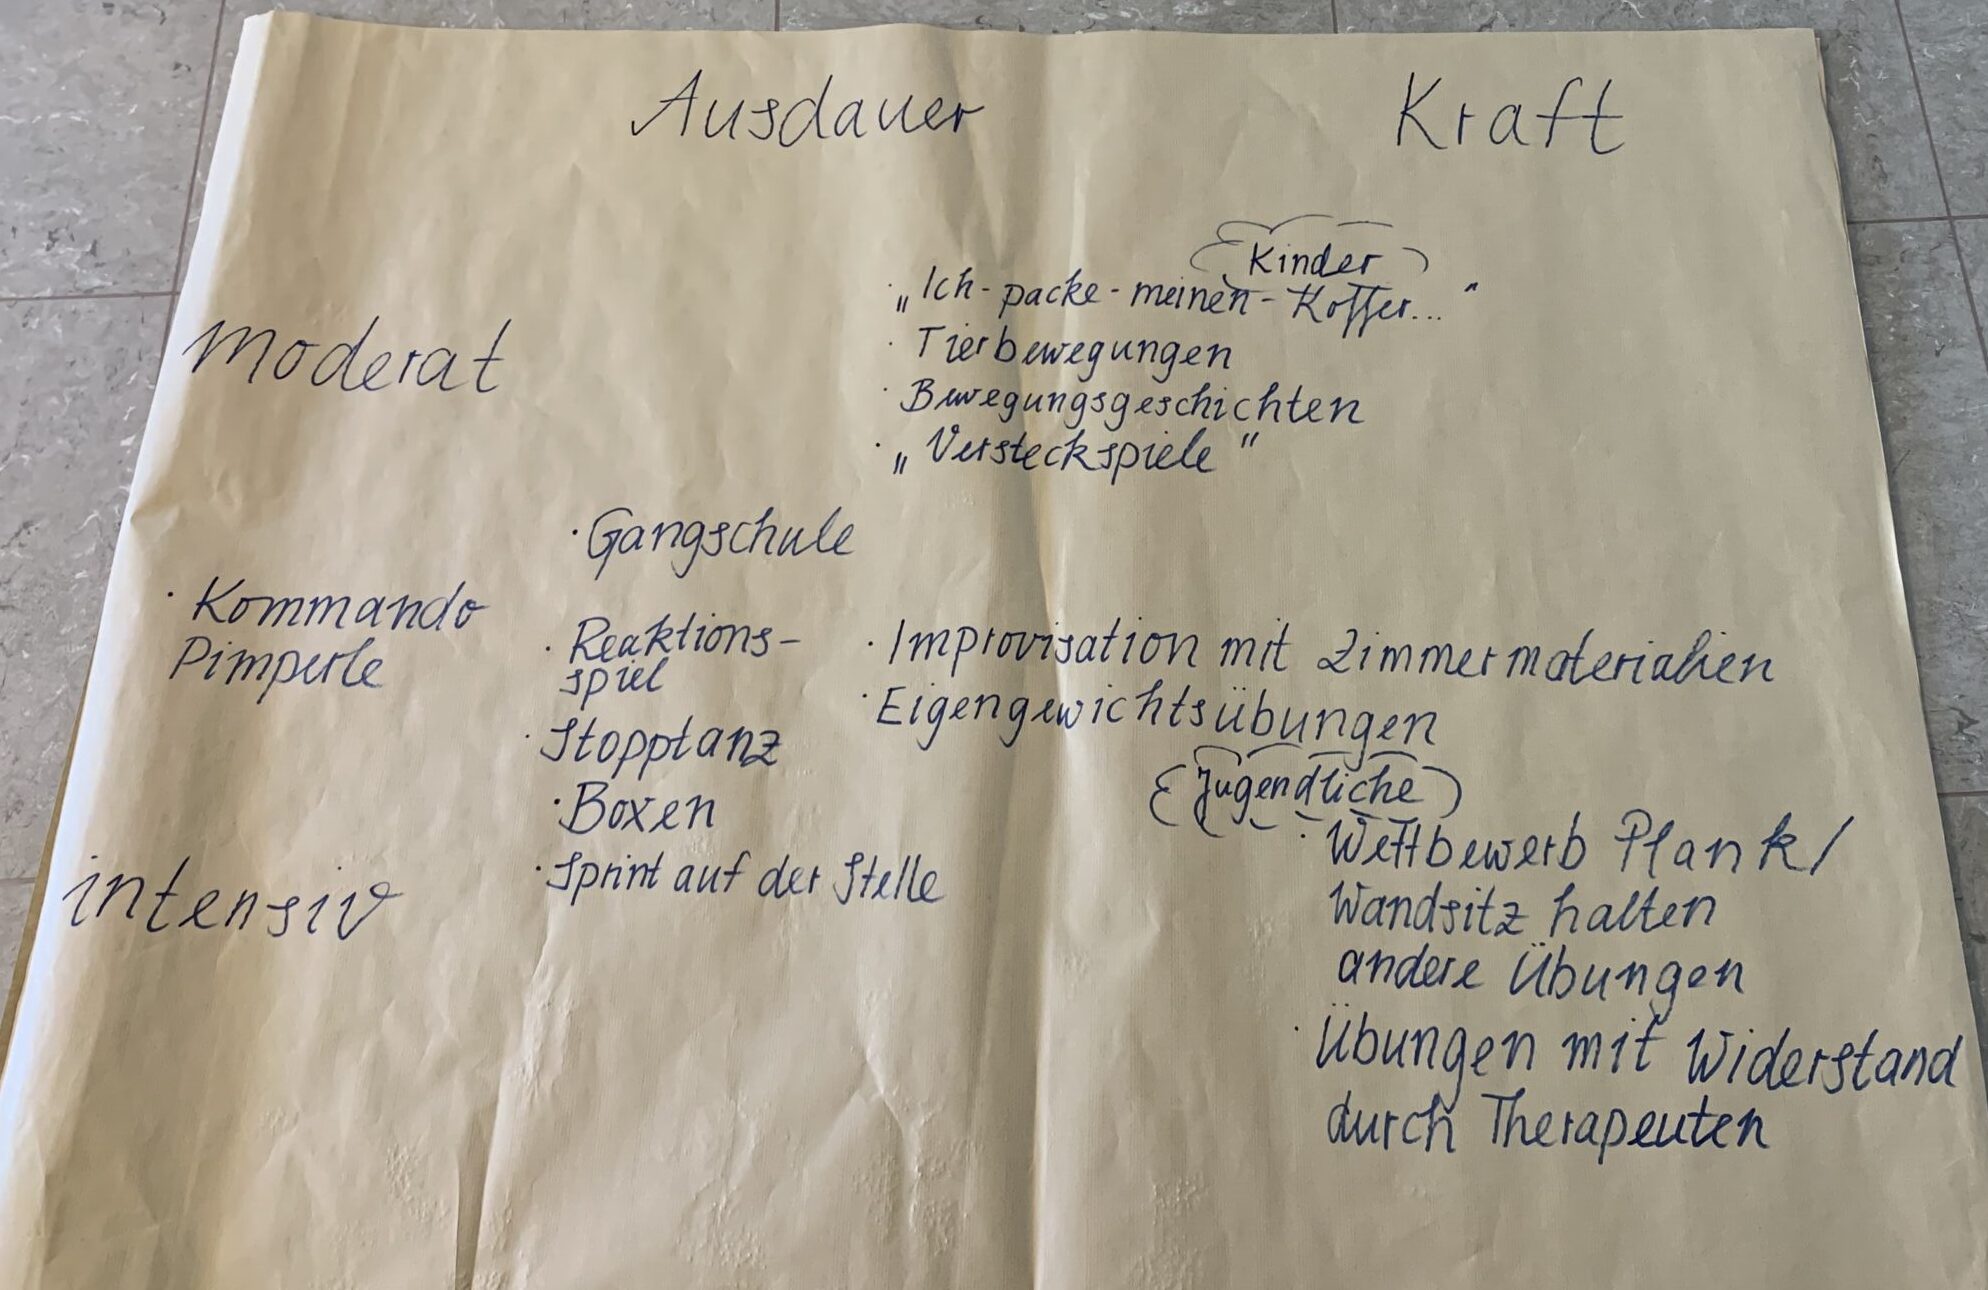 Ausdauer Kraft
Kinder
· „Ich-packe-meinen-Koffer..."
Moderat
· Tierbewegungen
· Bewegungsgeschichten
· „Versteckspiele"
· Gangschule
· Kommando
Pimperle
· Reaktions-
spiel
· Improvisation mit Zimmermaterialien
· Eigengewichtsübungen
· Stopptanz
Jugendliche
· Boxen
· Wettbewerb Plank/
Wandsitz halten
andere Übungen
intensiv
· Sprint auf der Stelle
· Übungen mit Widerstand
durch Therapeuten